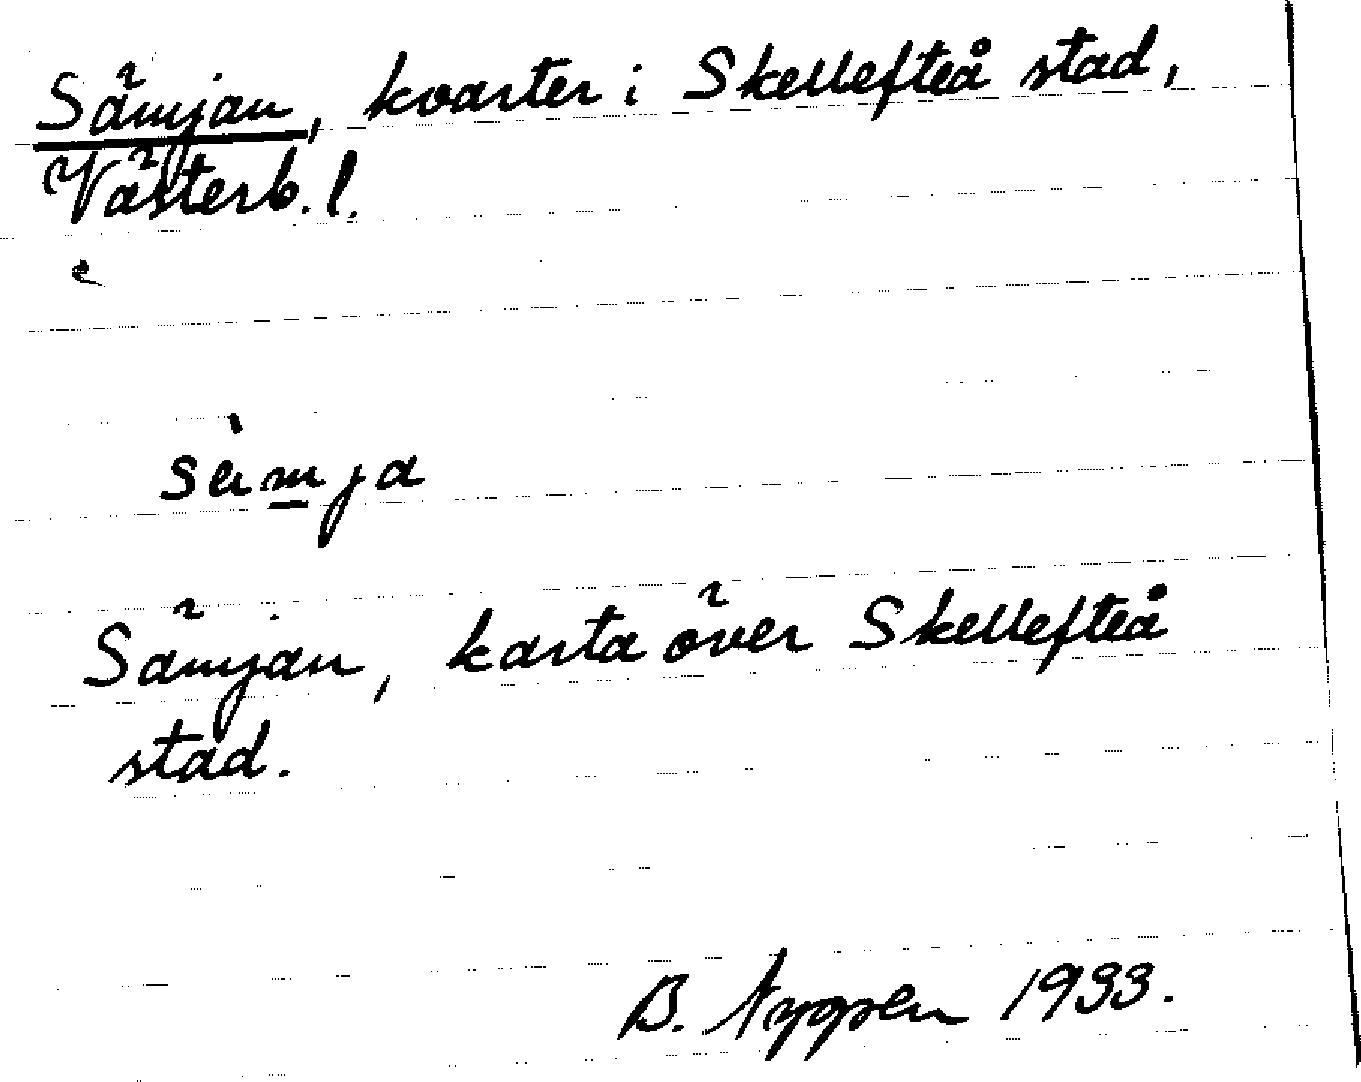 Sämjan, kvarter i Skellefteå stad,
Västerb. l.
e
sämja
Sämjan, karta över Skellefteå
stad.
B. 1933.